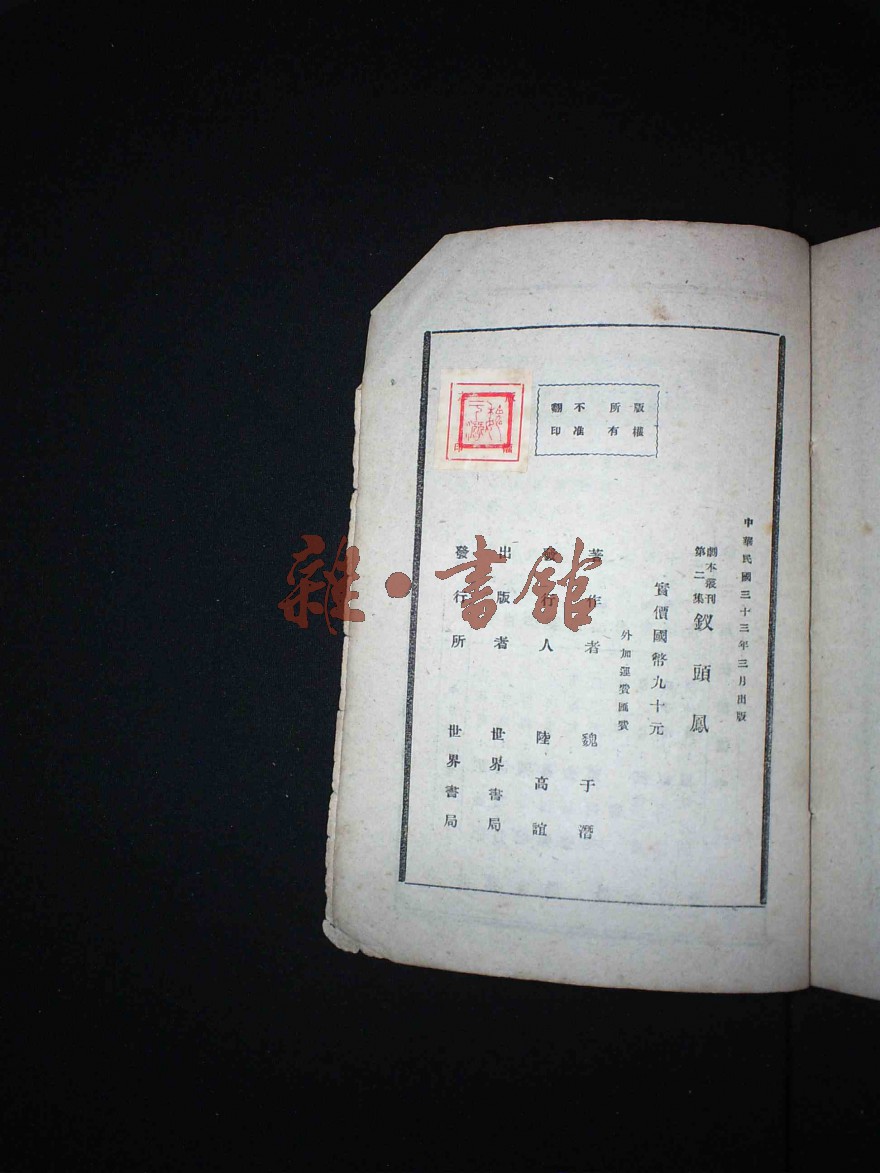 中華民國三十三年三月出版
劇本叢刊
第二集
釵頭鳳
實價國幣九十元
外加運費匯費
著作者 魏于潛
發行人 陸高誼
出版者 世界書局
發行所 世界書局
版權
所有
不准
翻印
版權印
雜·書館